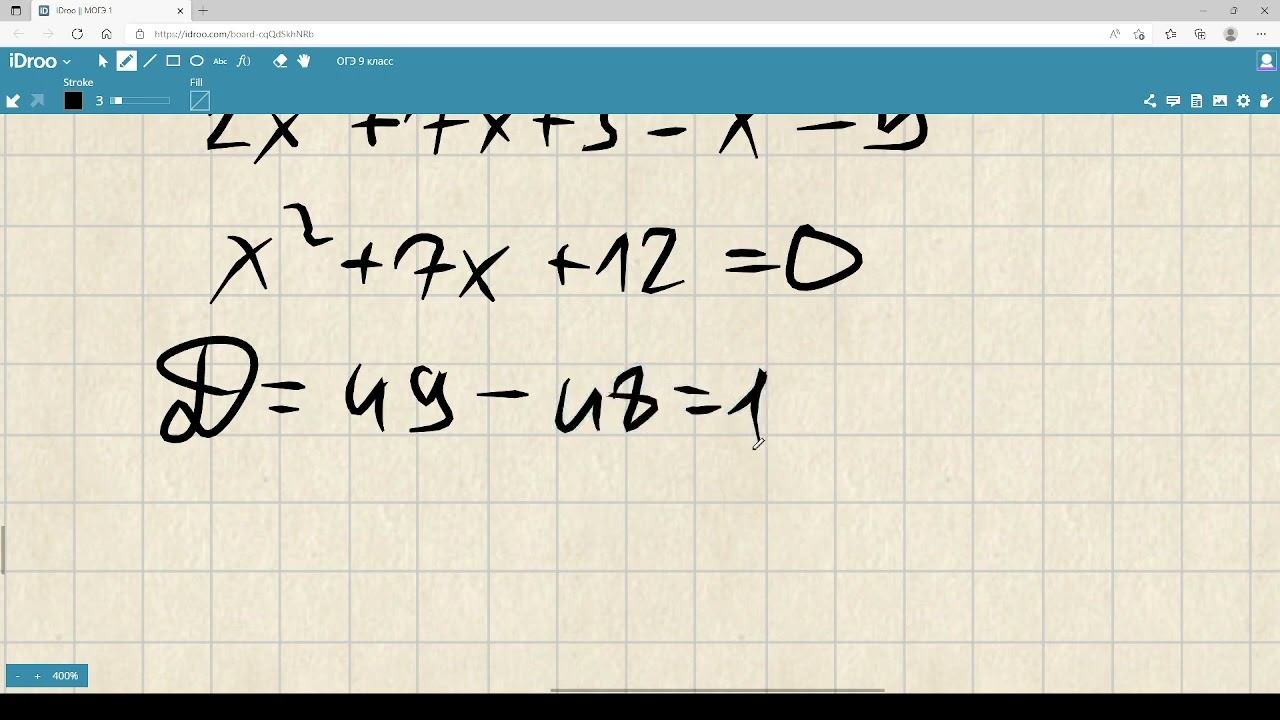 iDroo || МОГЭ 1
https://idroo.com/board-cqQdSkhNRb
iDroo Abc f() ОГЭ 9 класс
Stroke Fill
3
x² + 7x + 12 = 0
D = 49 - 48 = 1
- + 400%